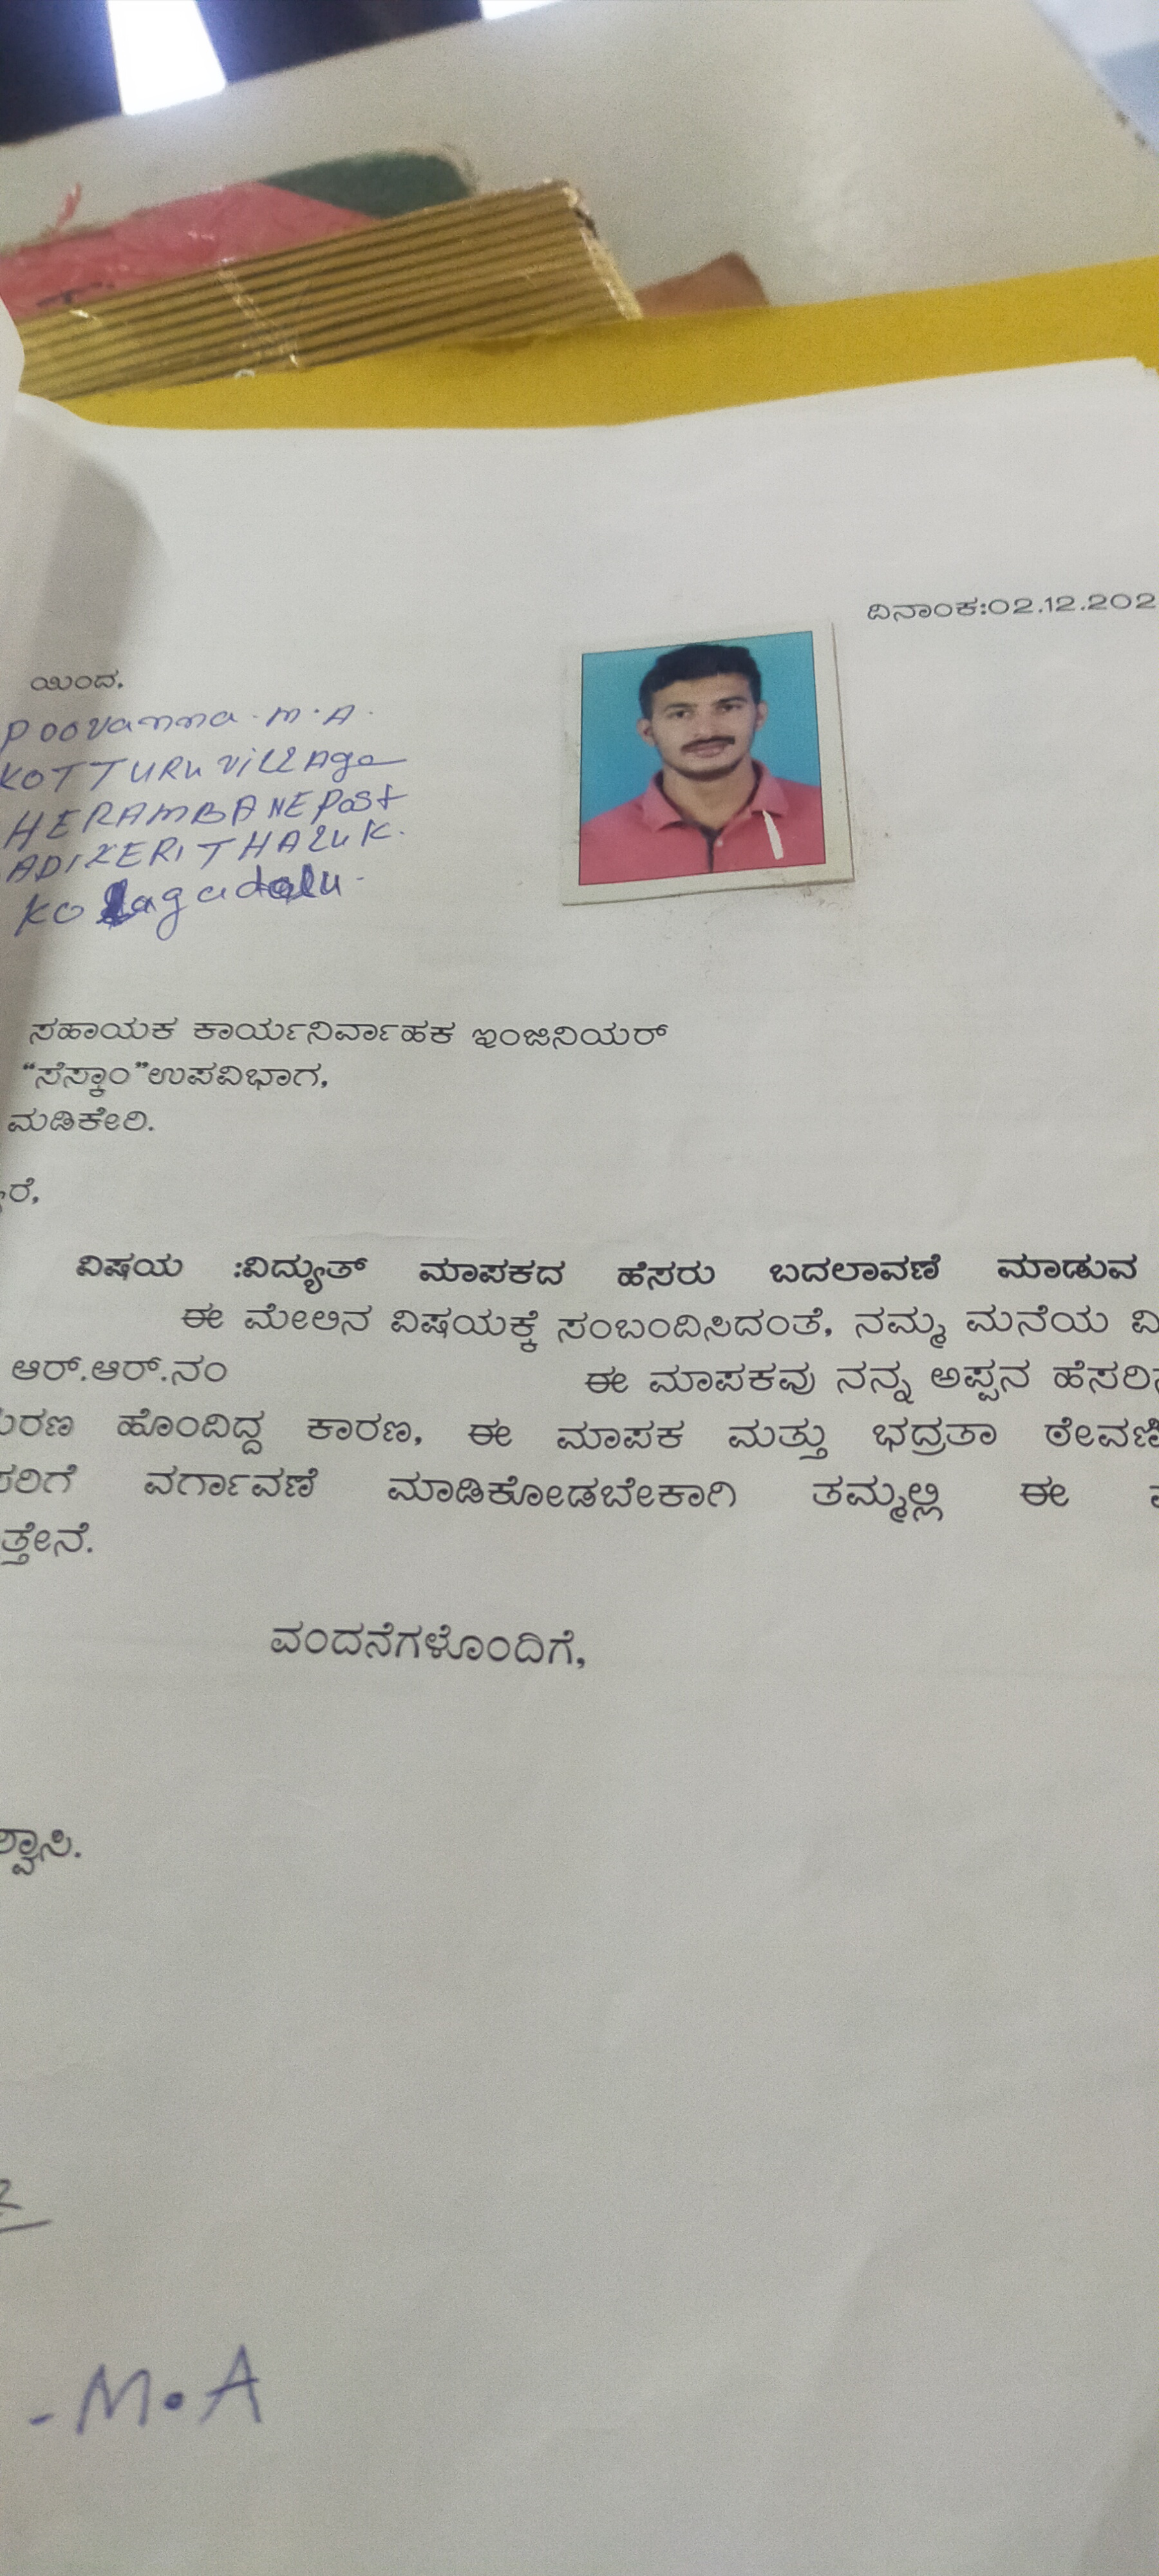 ದಿನಾಂಕ:02.12.202
ಯಿಂದ,
Poovanna. M. A.
KOTTURU VILLAge
HERAMBANE Post
ADIKERI THALUK.
KOdagu
ಸಹಾಯಕ ಕಾರ್ಯನಿರ್ವಾಹಕ ಇಂಜಿನಿಯರ್
“ಸೆಸ್ಕಾಂ”ಉಪವಿಭಾಗ,
ಮಡಿಕೇರಿ.
ರೆ,
ವಿಷಯ :ವಿದ್ಯುತ್ ಮಾಪಕದ ಹೆಸರು ಬದಲಾವಣೆ ಮಾಡುವ
ಈ ಮೇಲಿನ ವಿಷಯಕ್ಕೆ ಸಂಬಂದಿಸಿದಂತೆ, ನಮ್ಮ ಮನೆಯ ವಿ
ಆರ್.ಆರ್.ನಂ ಈ ಮಾಪಕವು ನನ್ನ ಅಪ್ಪನ ಹೆಸರಿನ
ರಣ ಹೊಂದಿದ್ದ ಕಾರಣ, ಈ ಮಾಪಕ ಮತ್ತು ಭದ್ರತಾ ಠೇವಣಿ
ಸರಿಗೆ ವರ್ಗಾವಣೆ ಮಾಡಿಕೋಡಬೇಕಾಗಿ ತಮ್ಮಲ್ಲಿ ಈ
ತ್ತೇನೆ.
ವಂದನೆಗಳೊಂದಿಗೆ,
ಶ್ವಾಸಿ.
- M.A